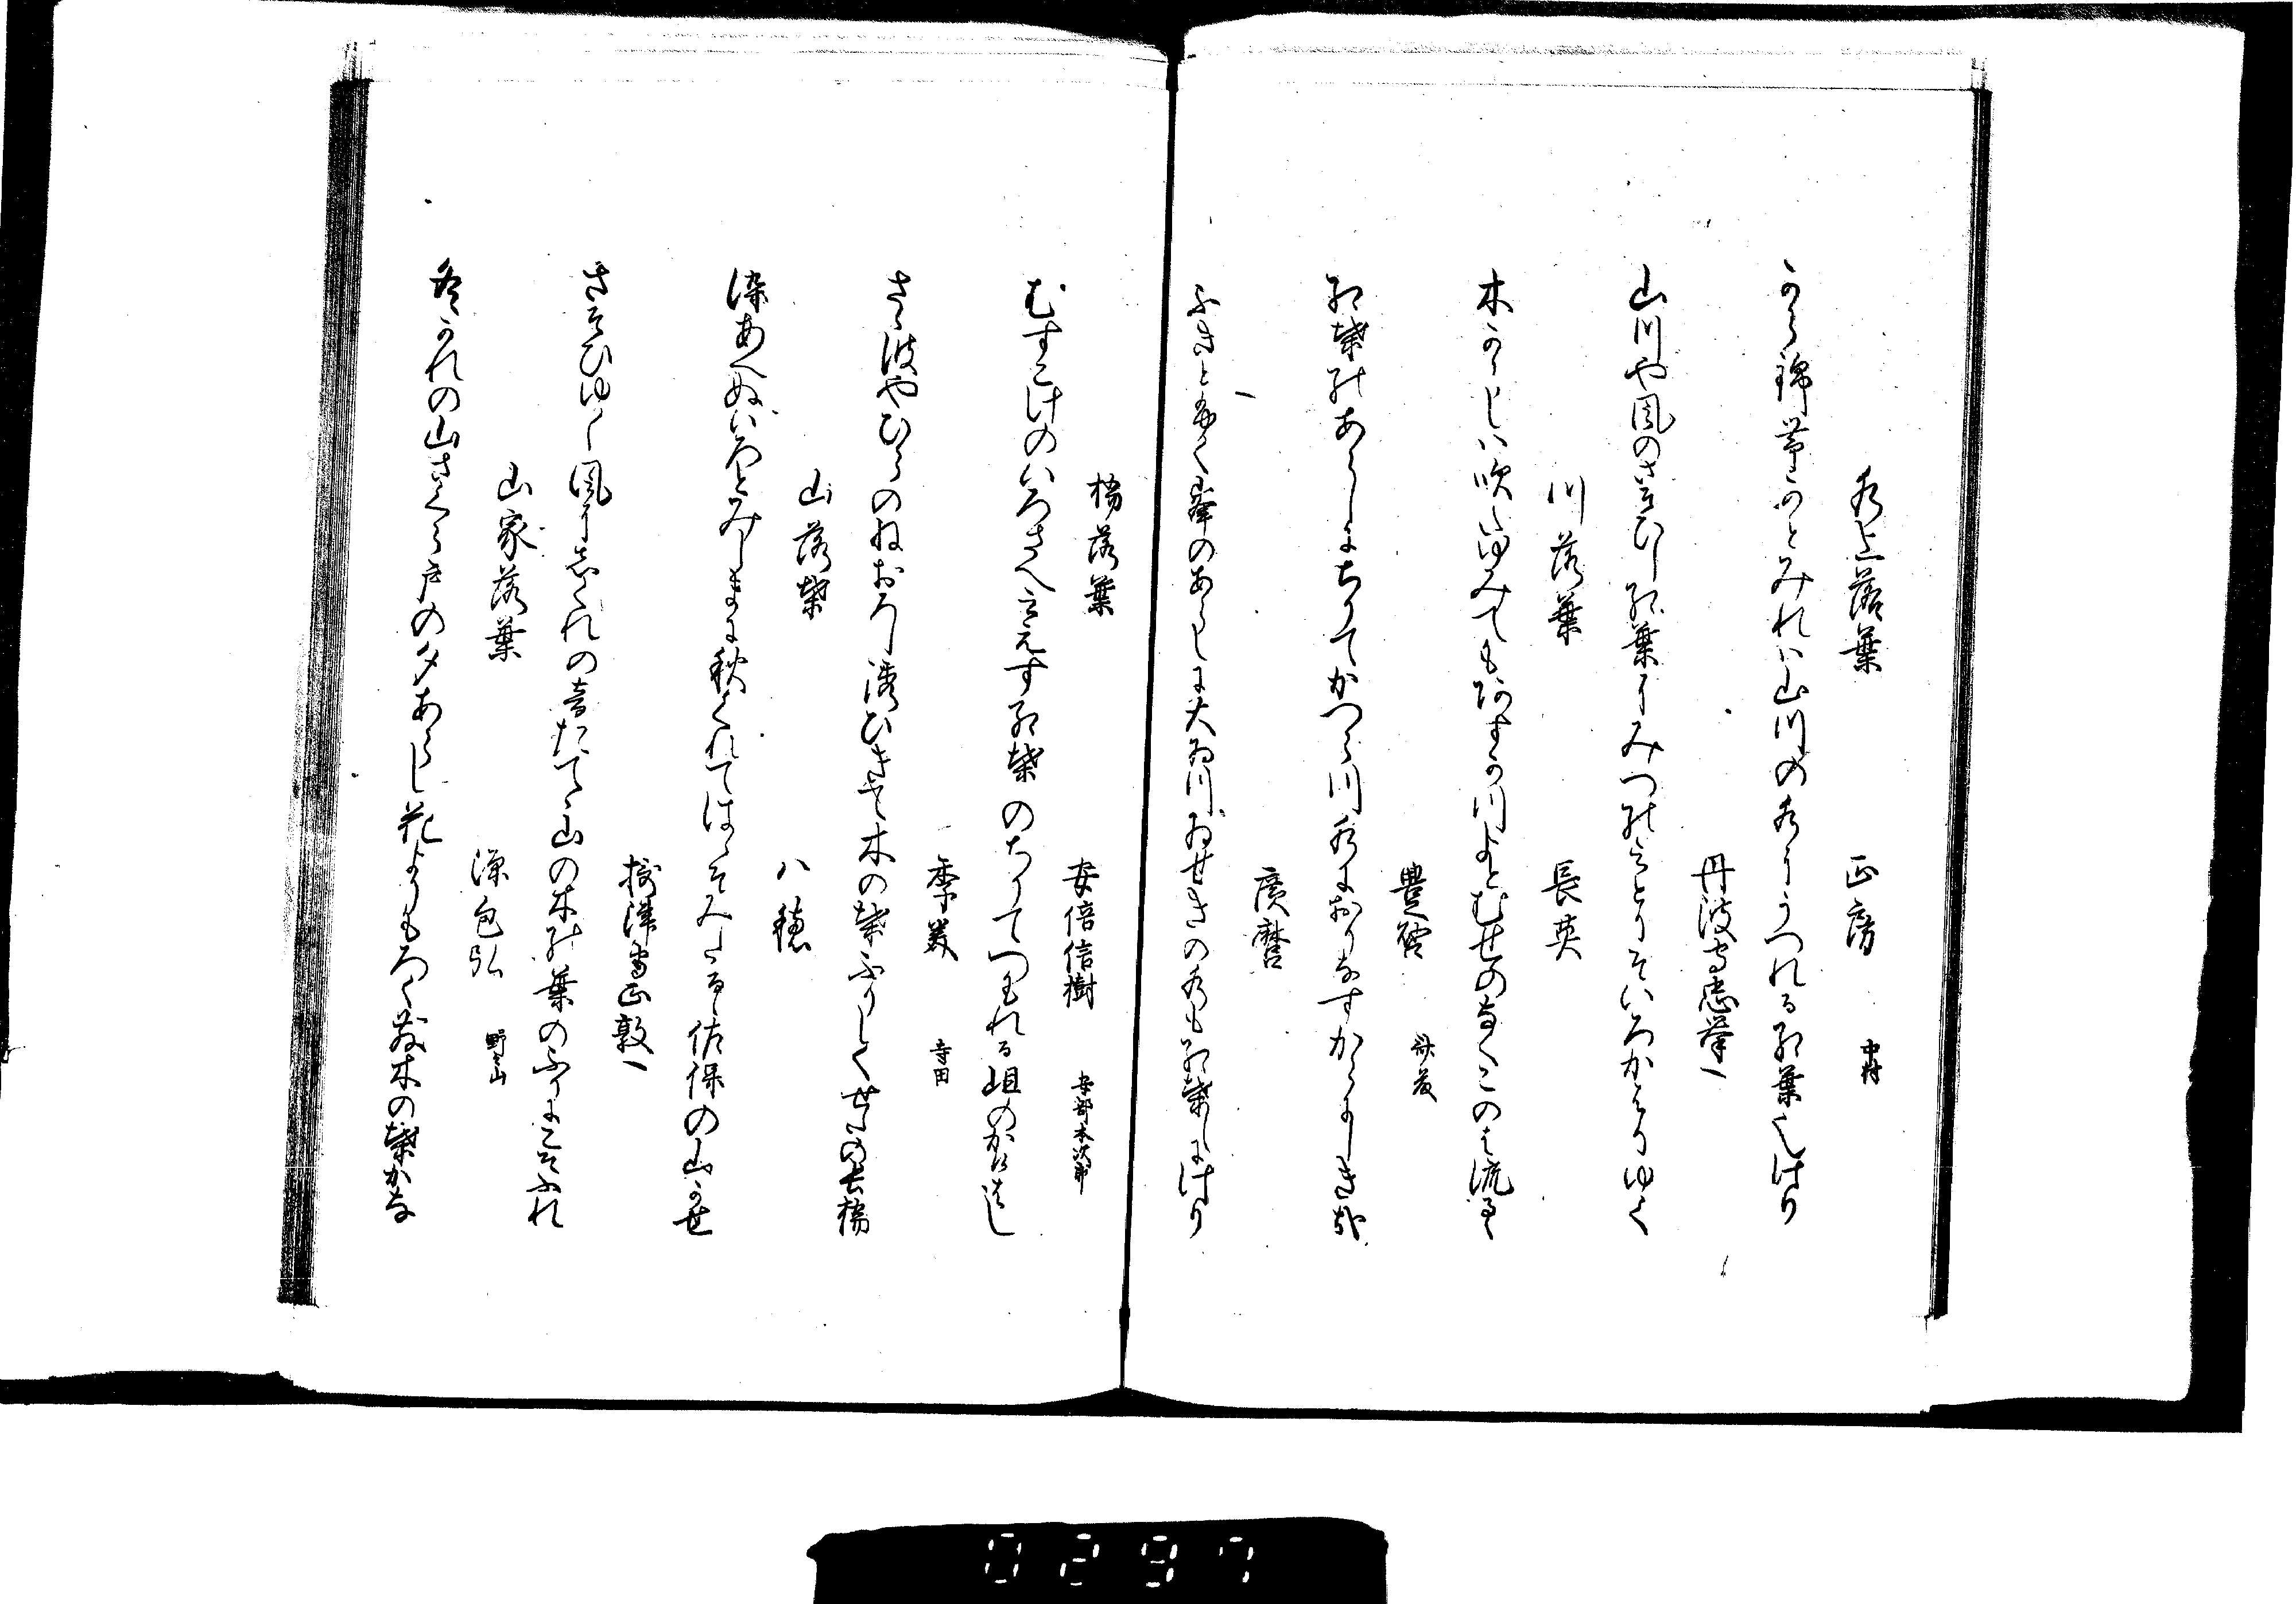 水上落葉　正房　中村
から錦茸かとみれは山川の水にうつれる紅葉也けり
丹波守忠挙
山川や風のさそひし紅葉にみつのみとりそいろかはりゆく
川落葉　長英
木からしは吹たゆみてもあすか川よとむせのなくこのは流るゝ
豊啓
紅葉のあらしにちりてかつら川水におりなすからにしき哉
広麿
ふきと吹く峯のあらしに大ゐ川ゐせきの水も紅葉しにけり
橋落葉　安倍信樹　安部木次郎
むすこけのいろさへみえす紅葉のちりてつもれる岨のかけはし
季義　寺田
さゝ波やひらのねおろし誘ひきて木の葉ふりしくせたの長橋
山落葉　八穂
染あへぬいろとみしまに秋くれてはゝそみたるゝ佐保の山かせ
摂津守正敦
さそひゆく風にしくれの音たてゝ山の木の葉のふりにこそふれ
山家落葉　深包弘　野山
冬かれの山さくら戸の夕あらし花よりもろく散木の葉かな
0297